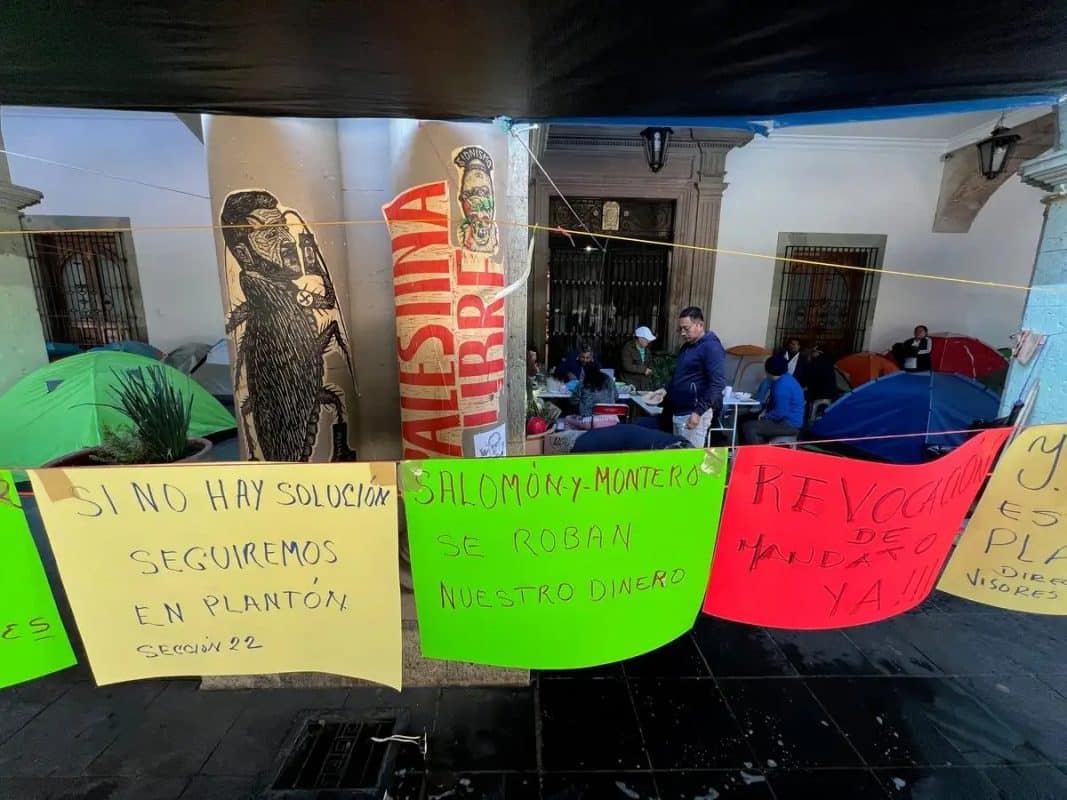 SIONISMO
ALESTINA
LIBRE
ES
SI NO HAY SOLUCIÓN
SEGUIREMOS
EN PLANTÓN.
SECCIÓN 22
SALOMÓN-Y-MONTERO
SE ROBAN
NUESTRO DINERO
REVOCACIÓN
DE
MANDATO
YA!!!
Y
ES
PLA
DIREC
VISORES